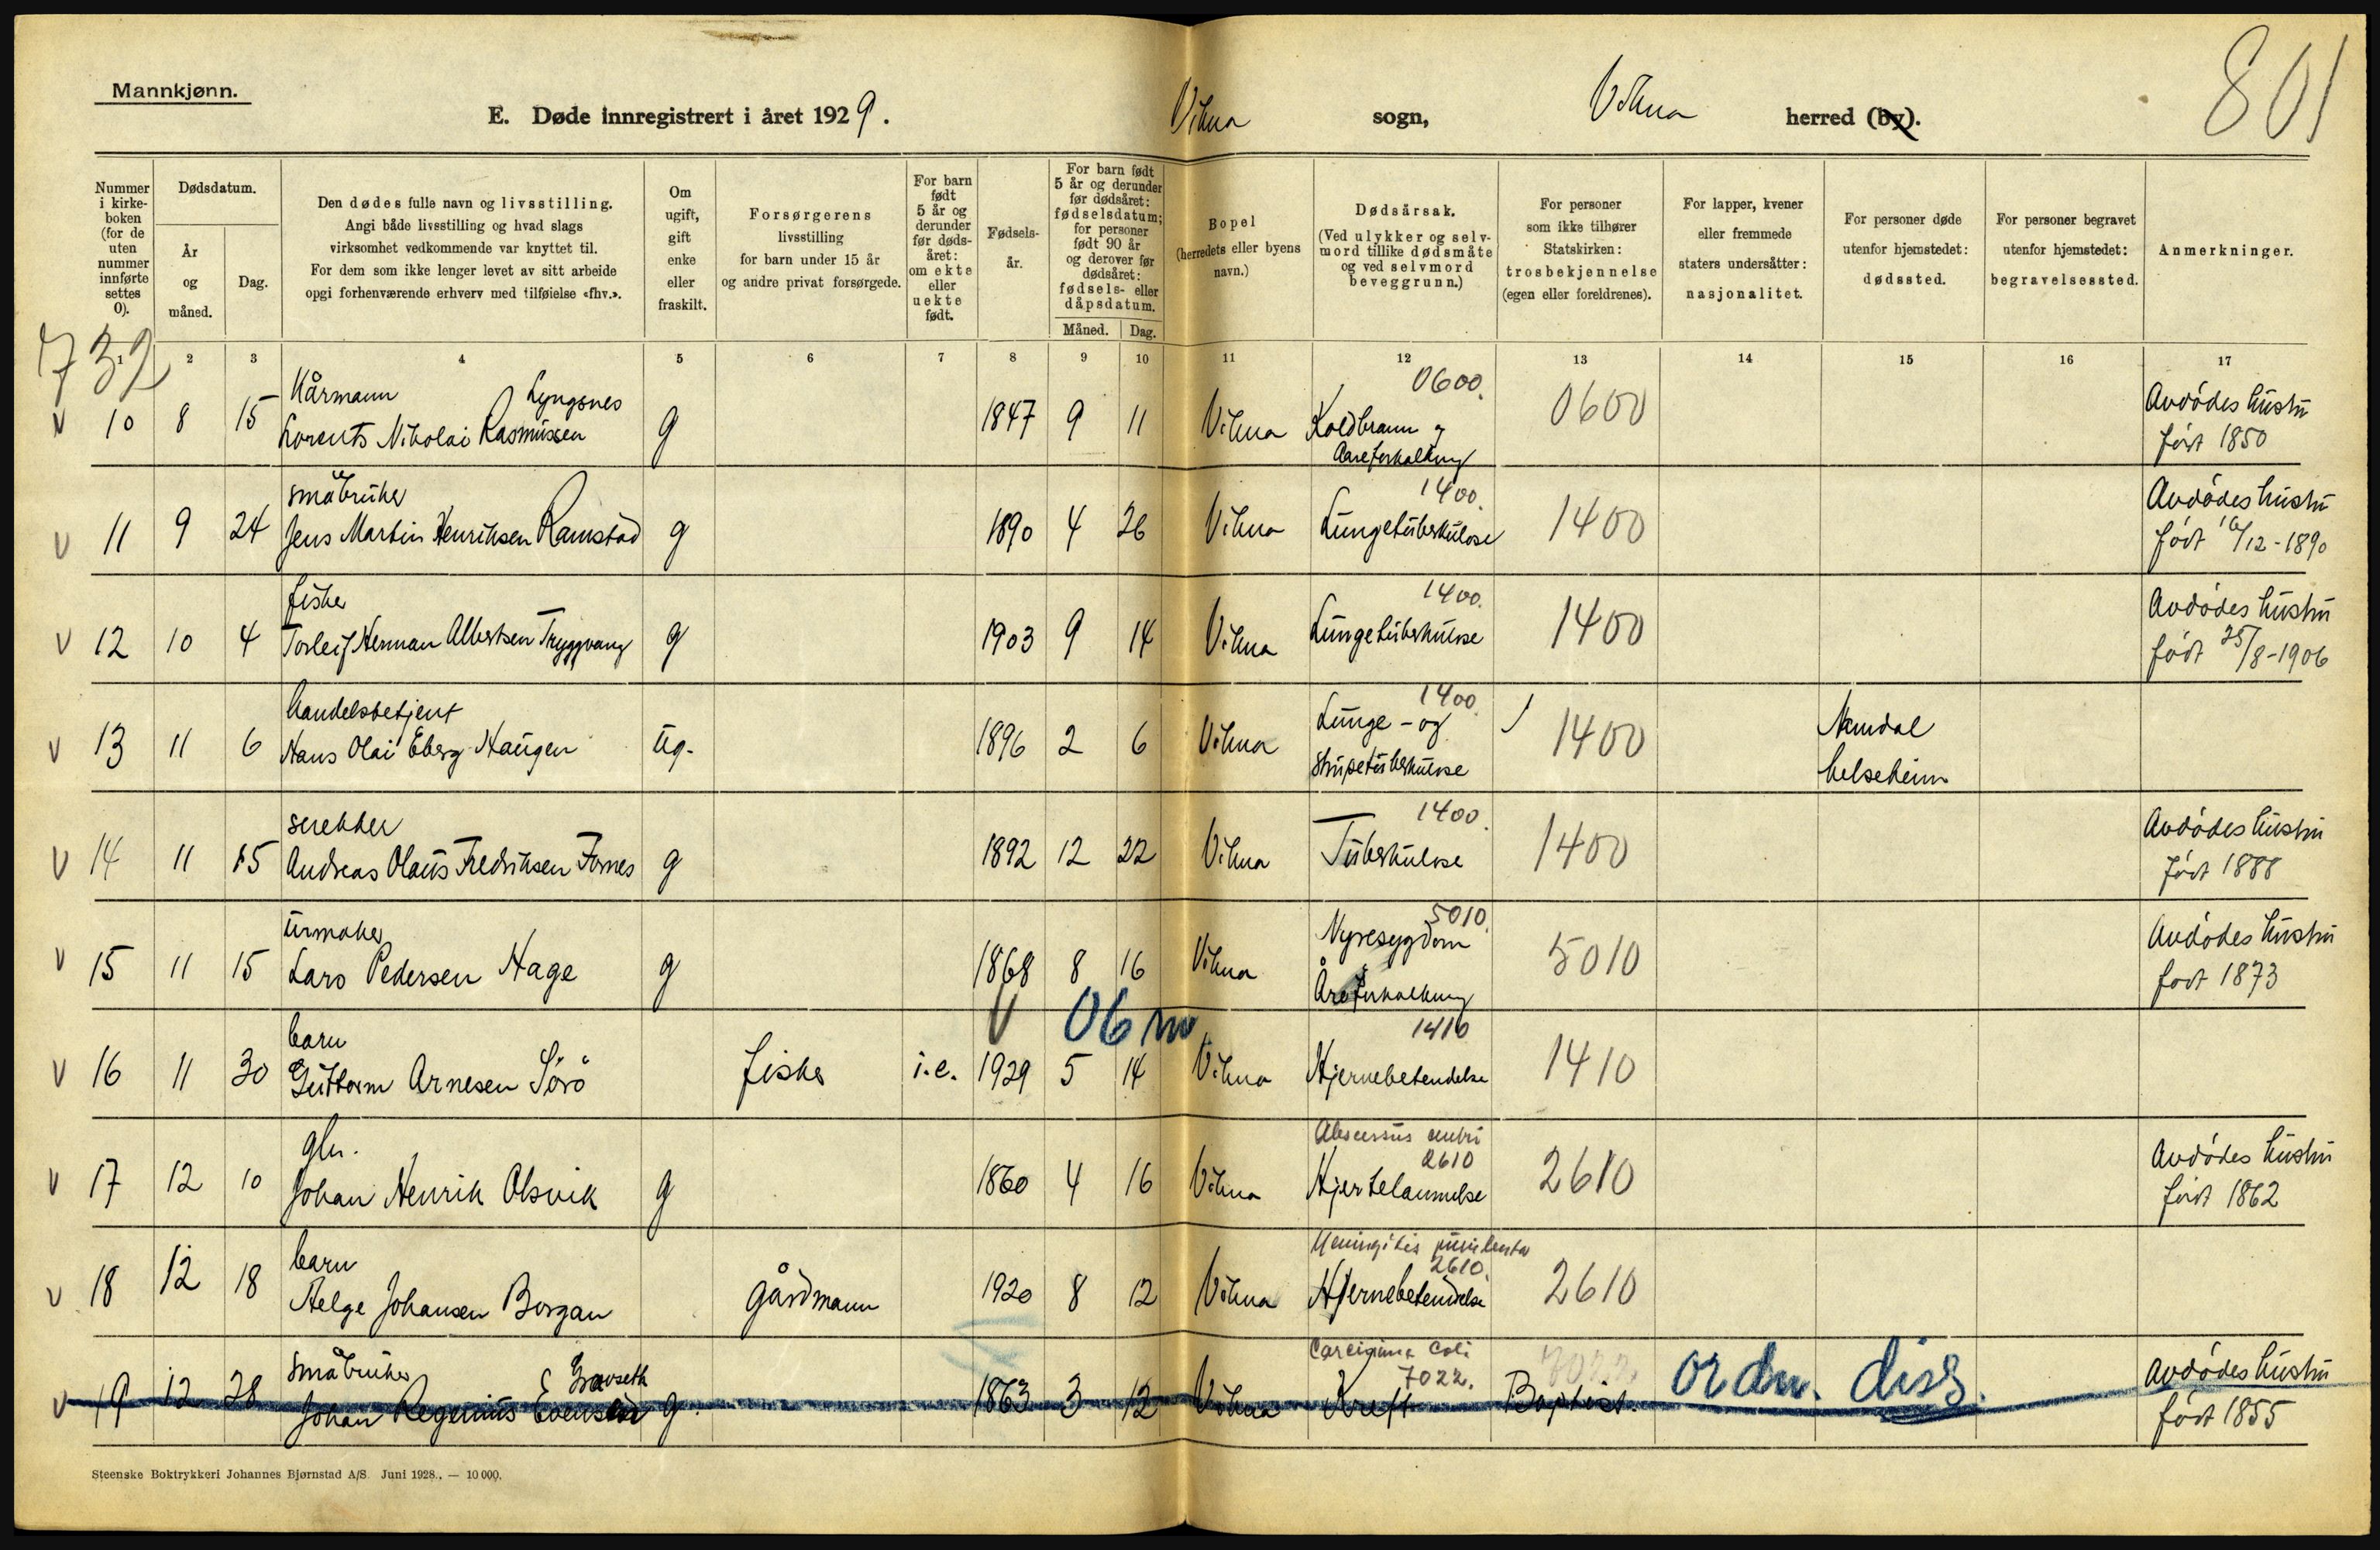 Mannkjønn.
801
E. Døde innregistrert i året 1929.
Vikna sogn, Vikna herred (by).
Nummer i kirke-boken (for de uten nummer innførte settes 0).
Dødsdatum.
År og måned.
Dag.
Den dødes fulle navn og livsstilling.
Angi både livsstilling og hvad slags
virksomhet vedkommende var knyttet til.
For dem som ikke lenger levet av sitt arbeide
opgi forhenværende erhverv med tilføielse «fhv.».
Om ugift, gift enke eller fraskilt.
Forsørgerens
livsstilling
for barn under 15 år
og andre privat forsørgede.
For barn født 5 år og derunder før døds-året: om ekte eller uekte født.
Fødsels-år.
For barn født 5 år og derunder før dødsåret: fødselsdatum; for personer født 90 år og derover før dødsåret: fødsels- eller dåpsdatum.
Måned. Dag.
Bopel
(herredets eller byens
navn.)
Dødsårsak.
(Ved ulykker og selv-
mord tillike dødsmåte
og ved selvmord
beveggrunn.)
For personer
som ikke tilhører
Statskirken:
trosbekjennelse
(egen eller foreldrenes).
For lapper, kvener
eller fremmede
staters undersåtter:
nasjonalitet.
For personer døde
utenfor hjemstedet:
dødssted.
For personer begravet
utenfor hjemstedet:
begravelsessted.
Anmerkninger.
732
1 2 3 4 5 6 7 8 9 10 11 12 13 14 15 16 17
Kårmann Lyngsnes 0600.
V 10 8 15 Lorents Nikolai Rasmussen g 1847 9 11 Vikna Koldbrann og 0600 Avdødes hustru
Aareforkalkning født 1850
småbruker 1400.
V 11 9 24 Jens Martin Henriksen Ramstad g 1890 4 26 Vikna Lungetuberkulose 1400 Avdødes hustru
født 16/12-1890
fisker 1400.
V 12 10 4 Torleif Herman Albertsen Tryggvang g 1903 9 14 Vikna Lungetuberkulose 1400 Avdødes hustru
født 25/8-1906
handelsbetjent 1400.
V 13 11 6 Hans Olai Eberg Haugen ug. 1896 2 6 Vikna Lunge- og 1400 Namdal
strupetuberkulose helseheim
1400.
V 14 11 15 Andreas Olaus Fredriksen Fornes g 1892 12 22 Vikna Tuberkulose 1400 Avdødes hustru
født 1888
urmaker 5010.
V 15 11 15 Lars Pedersen Hage g 1868 8 16 Vikna Nyresygdom 5010 Avdødes hustru
Åreforkalkning født 1873
V 06 m
barn 1410
V 16 11 30 Guttorm Arnesen Sørø fisker i.e. 1929 5 14 Vikna Hjernebetendelse 1410
Abscessus
2610
V 17 12 10 Johan Henrik Olsvik g 1860 4 16 Vikna Hjertelammelse 2610 Avdødes hustru
født 1862
barn Meningitis purulenta
2610.
V 18 12 18 Helge Johansen Borgan gårdmann 1920 8 12 Vikna Hjernebetendelse 2610
småbruker Carcinoma Coli
7022. 7022
V 19 12 28 Johan Regenius g. 1863 3 12 Vikna Kreft Baptist. ordn. diss. Avdødes hustru
født 1855
Steenske Boktrykkeri Johannes Bjørnstad A/S. Juni 1928. — 10 000.